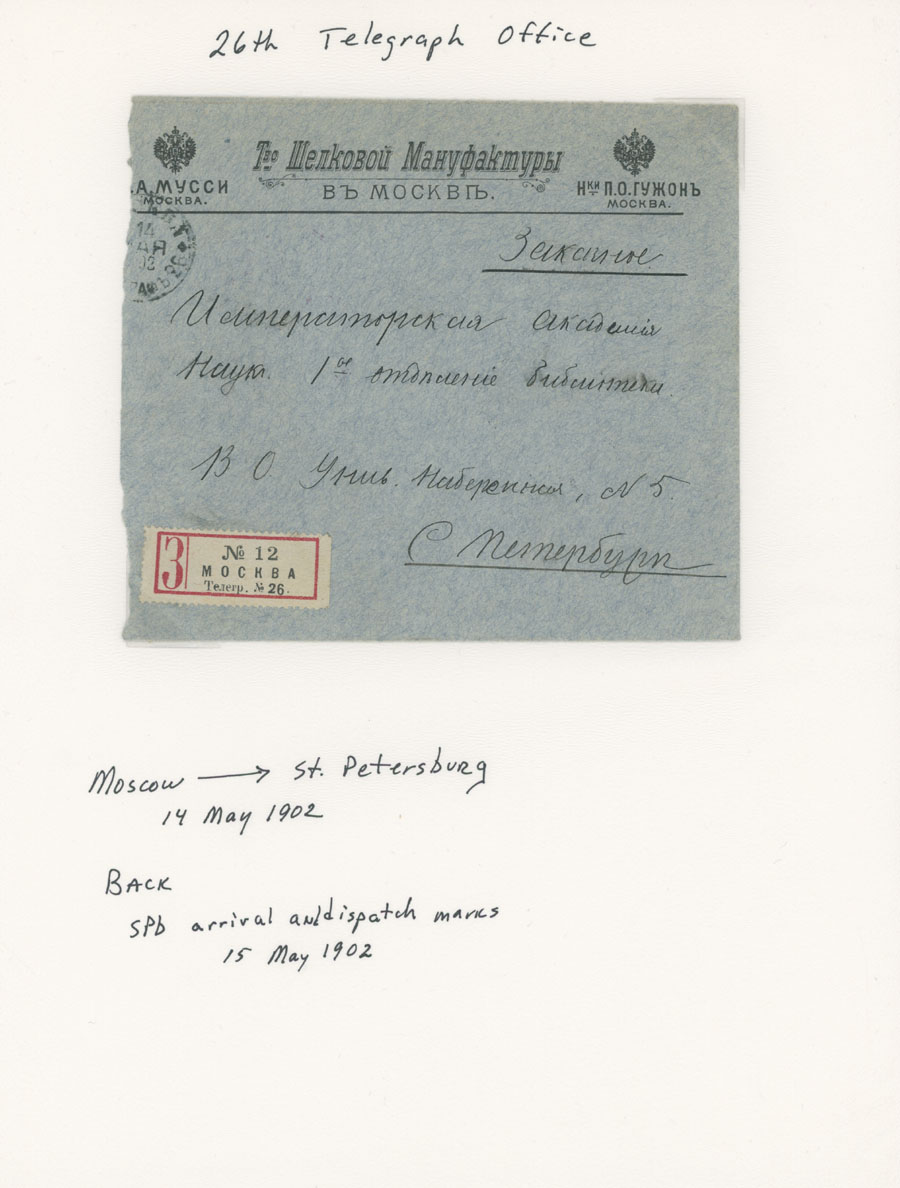 26th Telegraph Office
Тво Шелковой Мануфактуры
ВЪ МОСКВѢ.
.А. МУССИ
МОСКВА.
Нки П.О. ГУЖОНЪ
МОСКВА.
14
02
26
Заказное.
Императорская Академія
Наук. 1ое отдѣленіе библіотеки.
В О Унив. Набережная, N 5.
С Петербургъ
З
№ 12
МОСКВА
Телегр. № 26.
Moscow → St. Petersburg
14 May 1902
BACK
SPb arrival and dispatch marks
15 May 1902